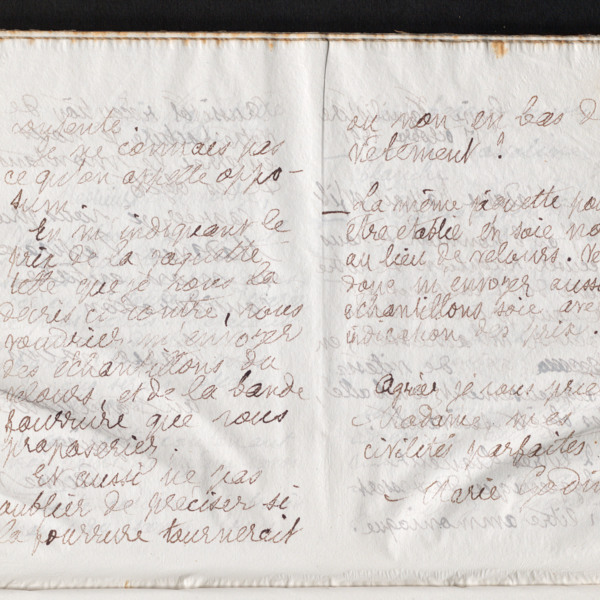 Je ne connais pas
ce qu'on appelle oppo-
sum.
En m'indiquant le
prix de la jaquette
telle que je vous la
décris ci contre, vous
voudriez m'envoyer
des échantillons du
velours, et de la bande
fourrure que vous
proposeriez.
Et aussi ne pas
oublier de préciser si
la fourrure tournerait
ou non en bas d
vêtement ?
— La même jaquette pou
être établie en soie no
au lieu de velours. Ve
donc m'envoyer aussi
échantillons soie ave
indication des prix.
Agréez je vous prie
Madame, mes
civilités parfaites.
Marie